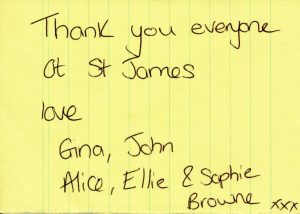 Thank you everyone
at St James
love
Gina, John
Alice, Ellie & Sophie
Browne xxx